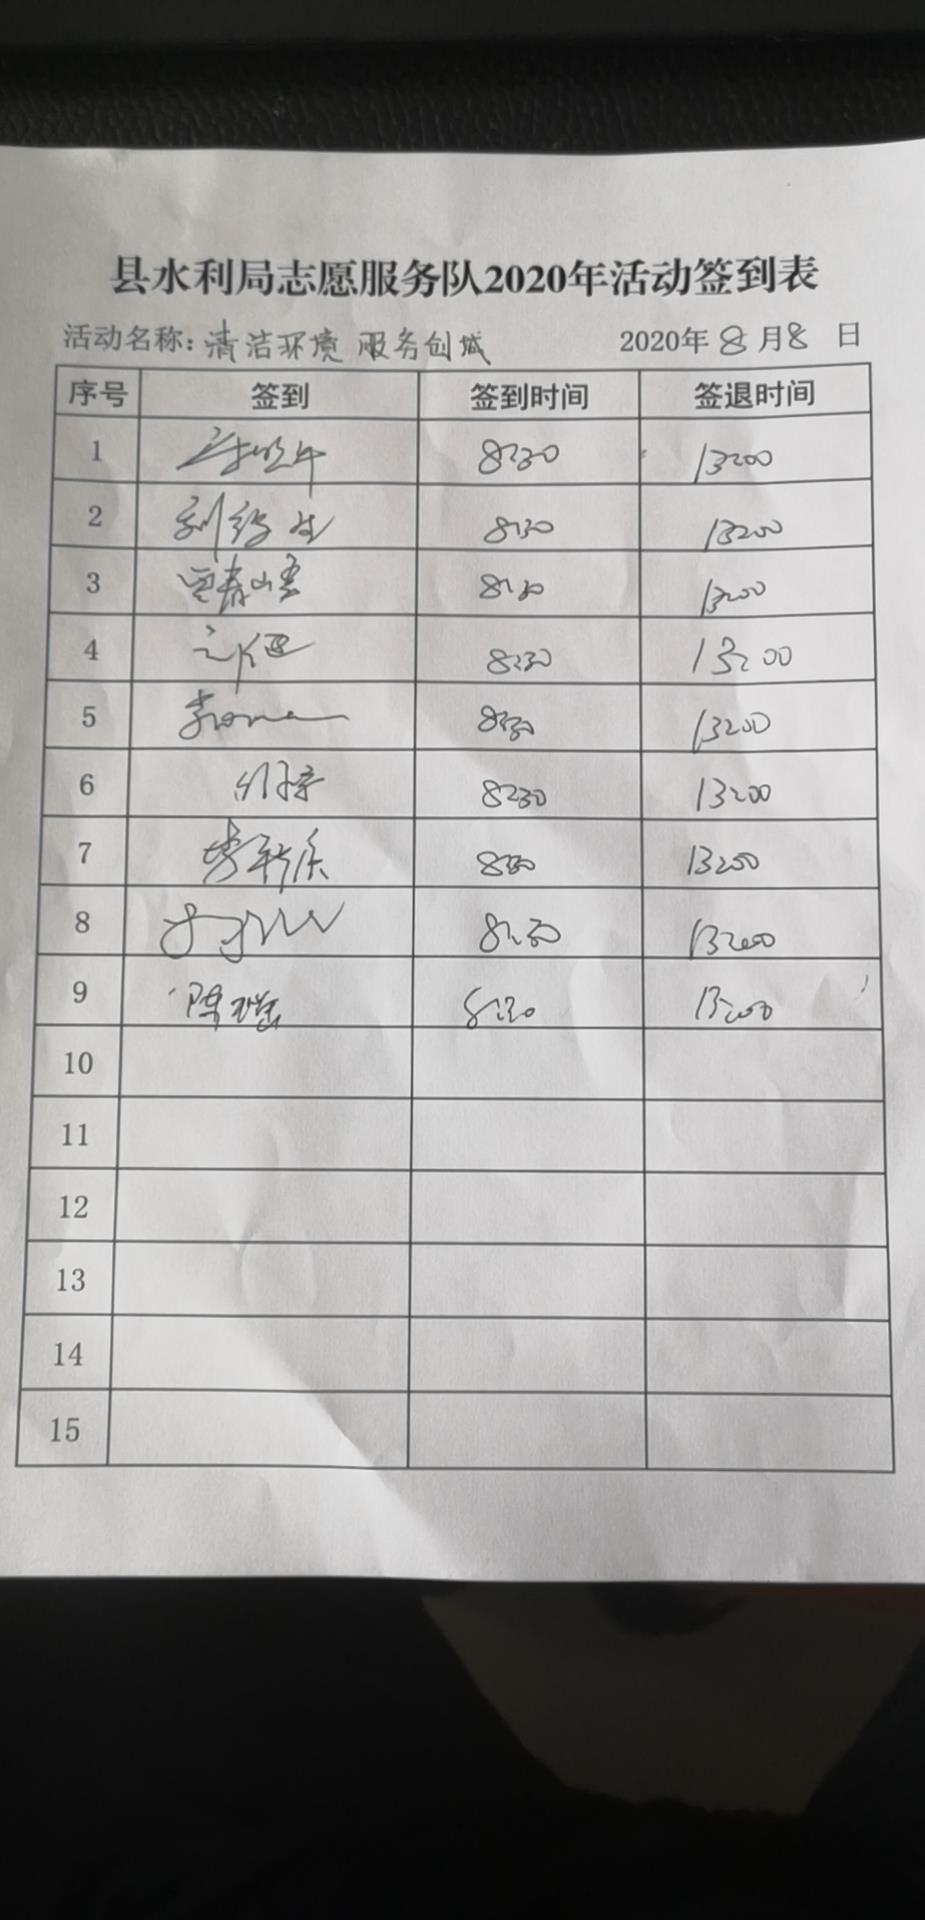 县水利局志愿服务队2020年活动签到表
活动名称：清洁环境 服务创城 2020年8月8日
序号 签到 签到时间 签退时间
1 8:30 13:00
2 8:30 13:00
3 8:30 13:00
4 8:30 13:00
5 8:30 13:00
6 8:30 13:00
7 8:30 13:00
8 8:30 13:00
9 8:30 13:00
10
11
12
13
14
15